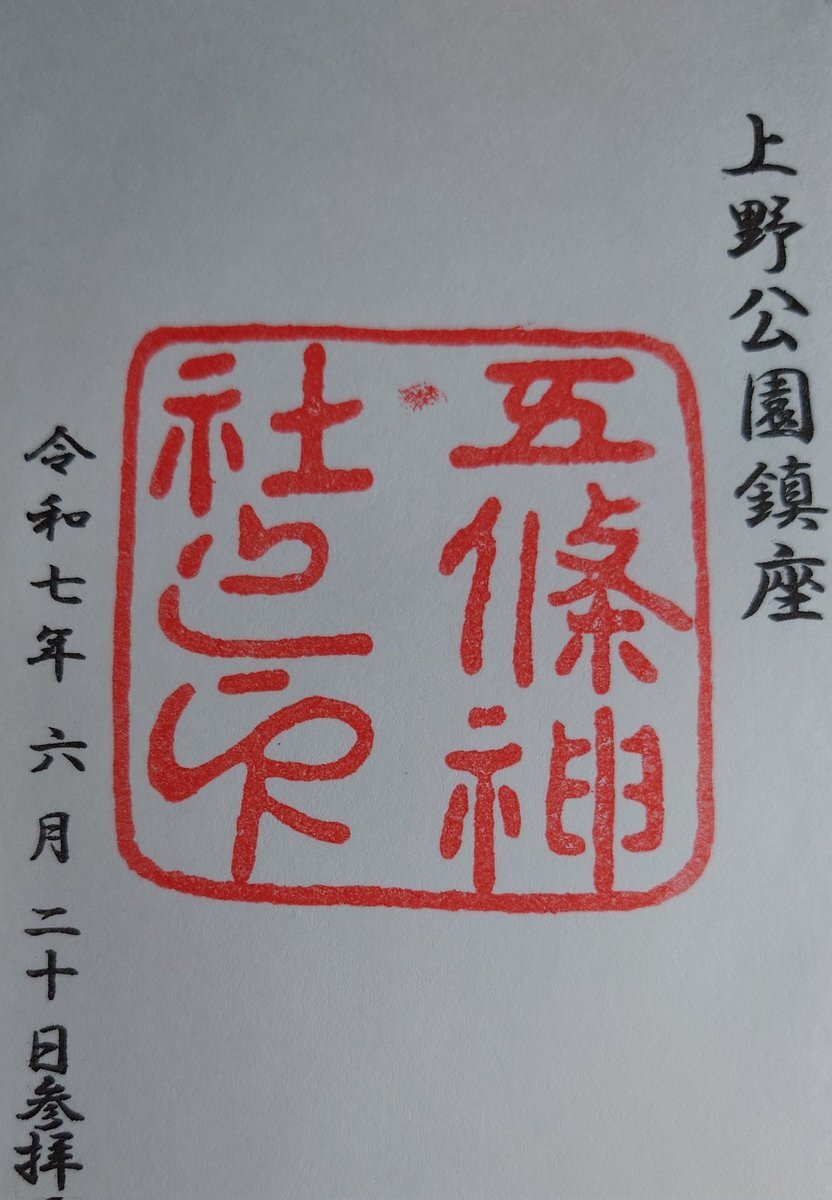 上野公園鎮座
五條神
社之印
令和七年 六月 二十日参拝